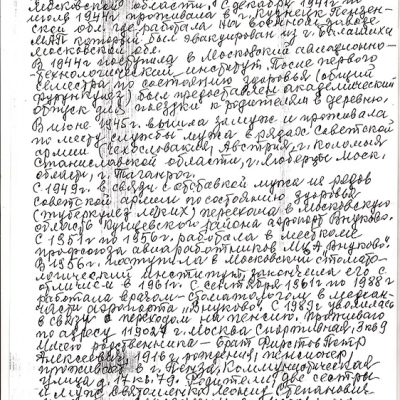 Московской области, С декабря 1941г. по
июль 1944г проживала в г. Кузнецк Пензен-
ской обл. где работала на военном заводе
который был эвакуирован из г. Балашиха
Московской обл.
В 1944г поступила в Московский авиационно-
технологический институт. После первого
семестра по состоянию здоровья (общий
фурункулез) был предоставлен академический
отпуск для поездки к родителям в деревню.
В июне 1945г. вышла замуж и проживала
по месту службы мужа в рядах Советской
армии (Чехословакия, Австрия, г. Коломыя
Станиславской области, г. Люберцы Моск.
область, г. Таганрог.
С 1949г. в связи с отставкой мужа из рядов
советской армии по состоянию здоровья
(туберкулез легких) переехала в Московскую
область Кунцевского района аэропорт Внуково.
С 1951г по 1956г. работала в месткоме
профсоюза авиаработников Внуково.
В 1956г. поступила в Московский стомато-
логический институт, закончила его с
отличием в 1961г. С сентября 1961г по 1988г
работала врачом-стоматологом в медсан-
части аэропорта Внуково. С 1989г уволилась
в связи с переходом на пенсию. Проживаю
по адресу 119027 г. Москва Спортивная, 3 кв 9
родственника - брат Фирстов Петр
Алексеевич, 1916г рождения, пенсионер,
проживает в г. Пенза, Коммунистическая
улица д. 17 кв. 79. Родители, две сестры
и муж Леонид Степанович